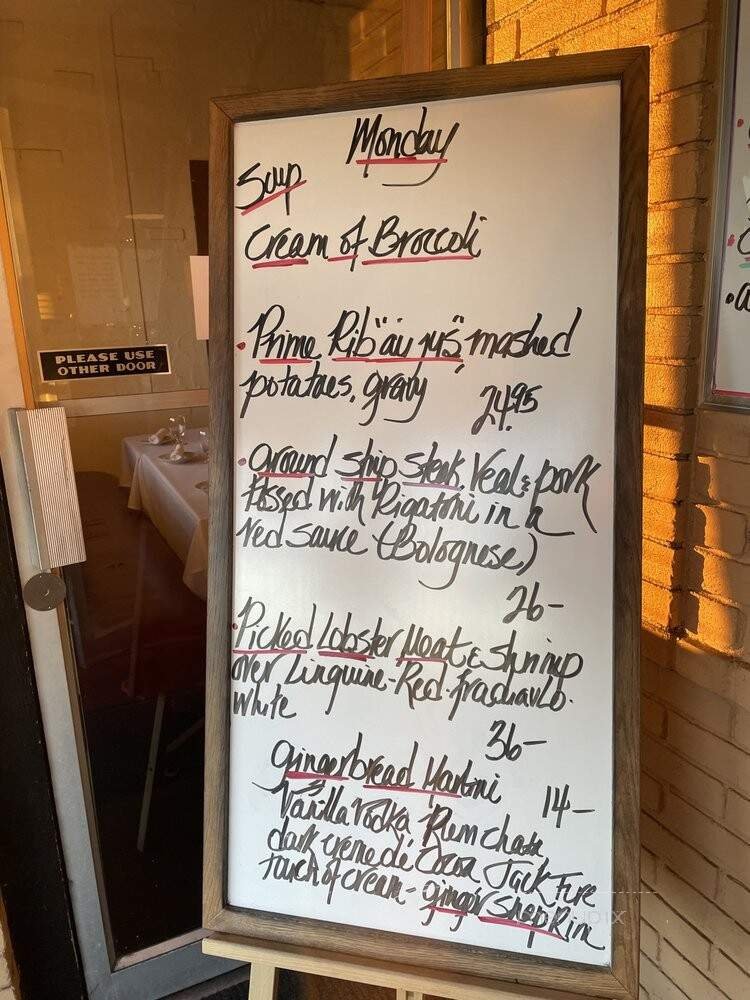 Monday
Soup
Cream of Broccoli
• Prime Rib "au jus", mashed
potatoes, gravy 24.95
• Ground ship Steak, Veal & pork
tossed with Rigatoni in a
red sauce (Bolognese)
26-
• Picked Lobster Meat & shrimp
over Linguine - Red. fradiavlo.
white
36-
gingerbread Martini
14-
Vanilla Vodka Rum Chata
dark creme de Cocoa Jack Fire
touch of cream - ginger Snap Rim
PLEASE USE
OTHER DOOR